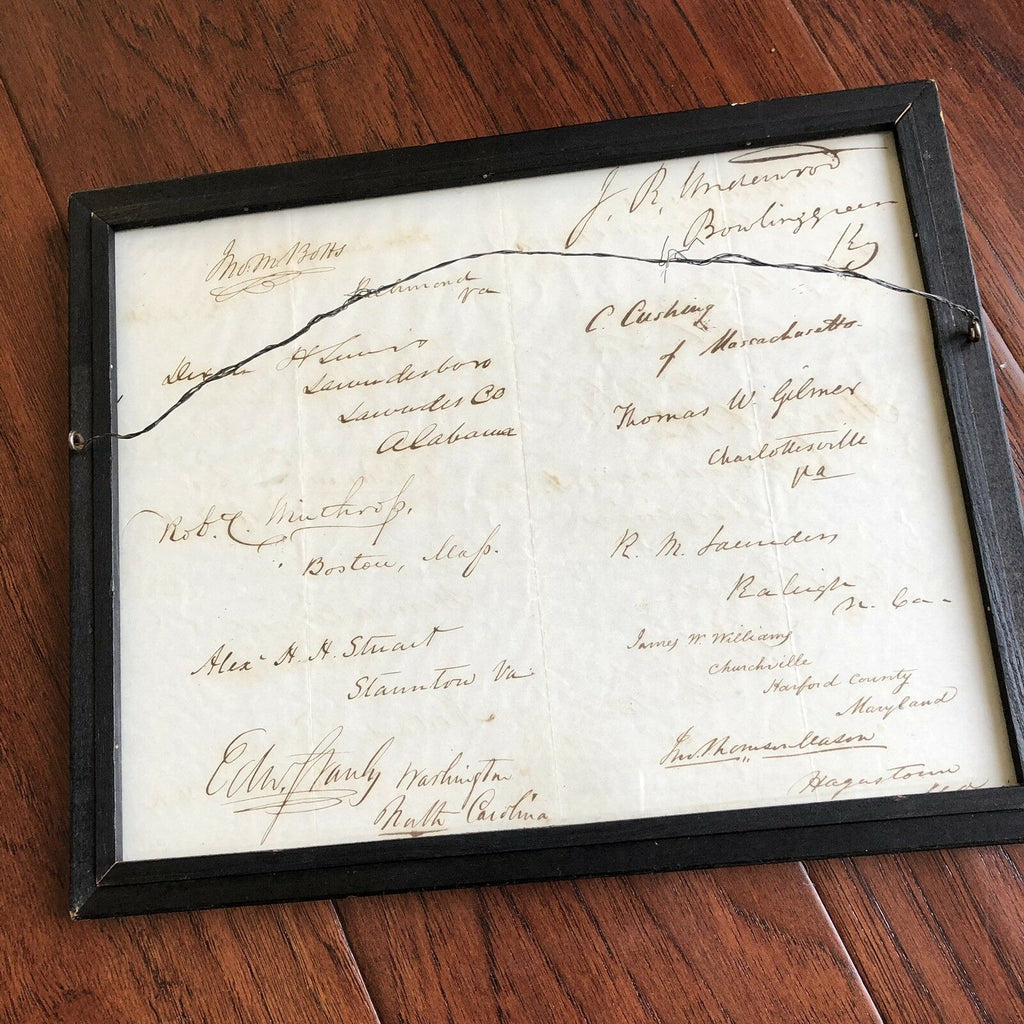 Jno. M. Botts
Richmond
Va
Dixon H Lewis
Lowndesboro
Lowndes Co
Alabama
Rob. C. Winthrop.
Boston, Mass.
Alexr H. H. Stuart
Staunton Va
Edw. Stanly Washington
North Carolina
J. R. Underwood
Bowlinggreen
Ky
C. Cushing
of Massachusetts.
Thomas W. Gilmer
Charlottesville
Va
R. M. Saunders
Raleigh
N. Ca-
James W. Williams
Churchville
Harford County
Maryland
Jno. Thomson Mason
Hagerstown